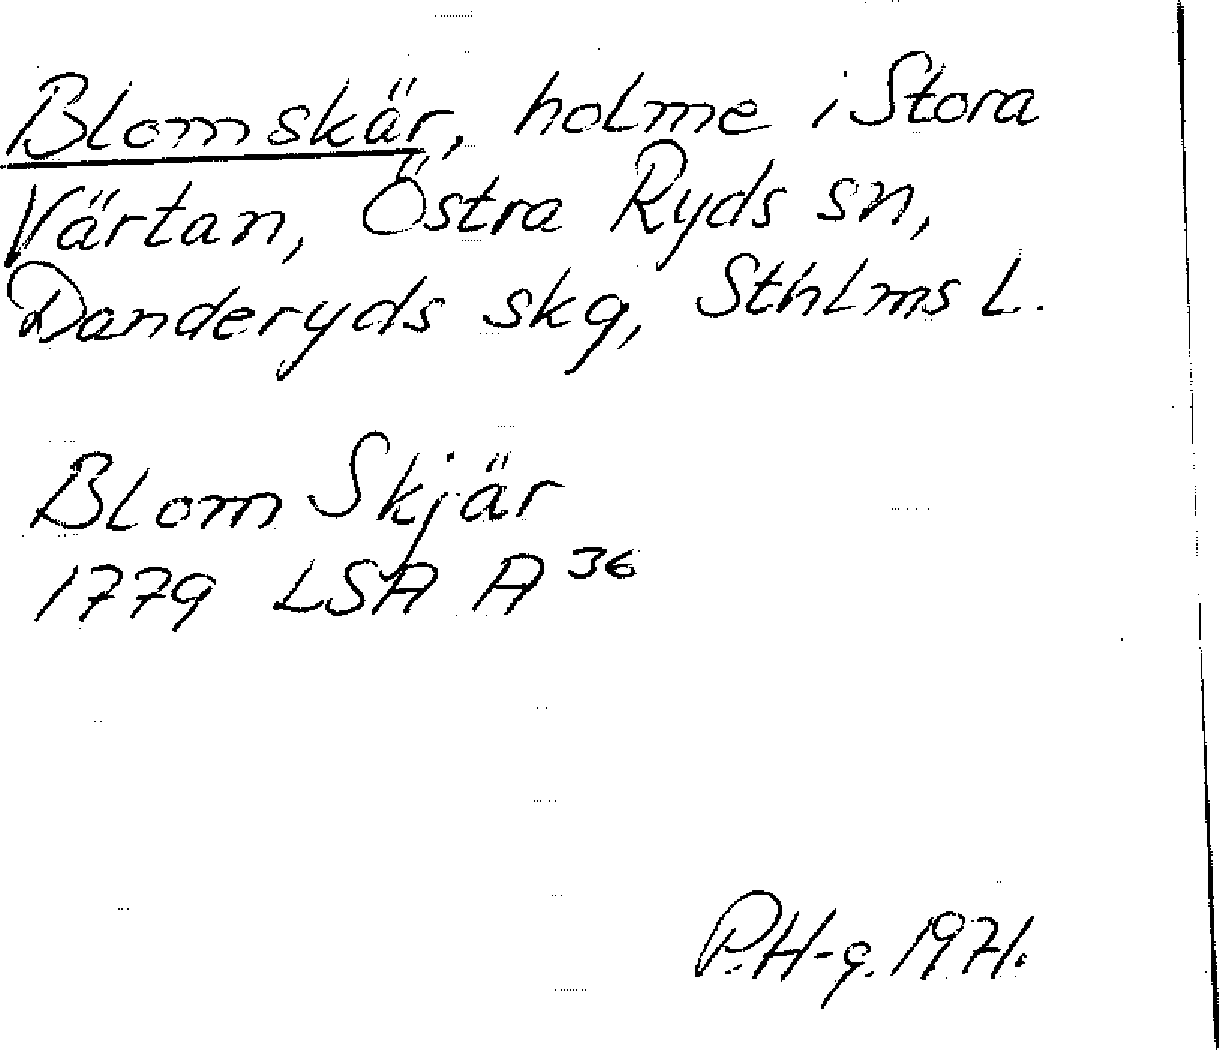 Blomskär, holme i Stora
Värtan, Östra Ryds sn,
Danderyds skg, Sthlms l.
Blom Skjär
1779 LSA A 36
P.H-g. 1971.